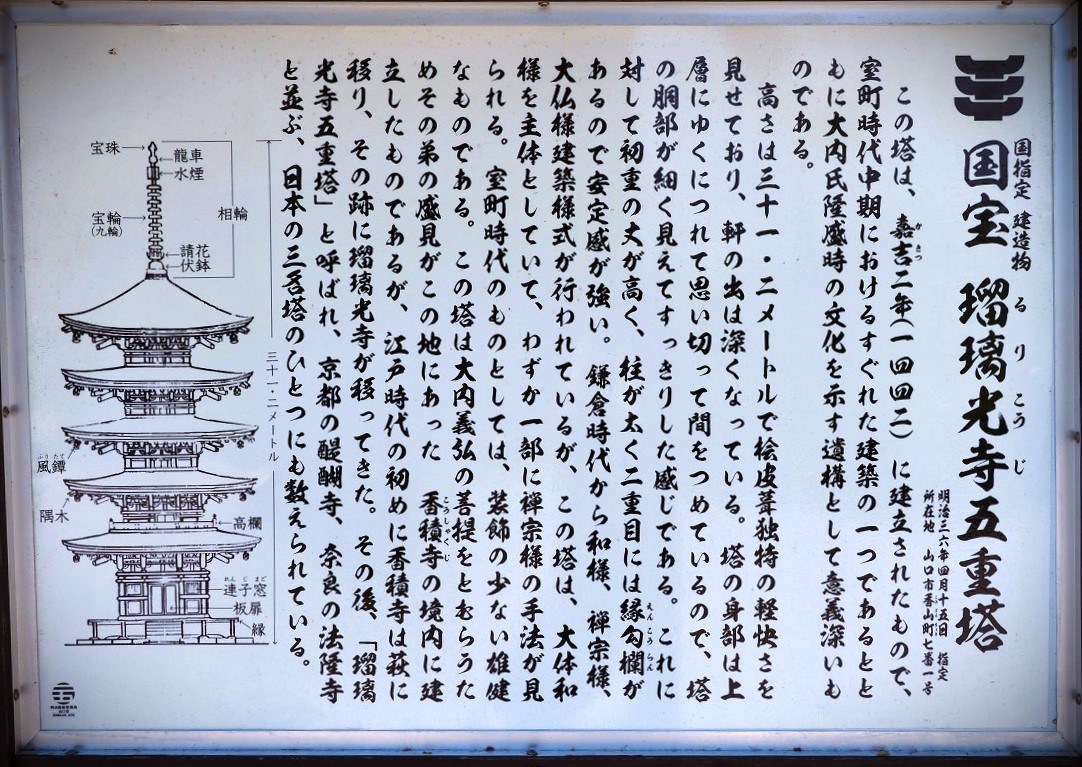 国指定 建造物
国宝 瑠璃光寺五重塔
るりこうじ
明治三六年四月十五日 指定
所在地 山口市香山町七番一号
この塔は、嘉吉二年(一四四二)に建立されたもので、
かきつ
室町時代中期におけるすぐれた建築の一つであるとと
もに大内氏隆盛時の文化を示す遺構として意義深いも
のである。
高さは三十一・二メートルで桧皮葺独特の軽快さを
見せており、軒の出は深くなっている。塔の身部は上
層にゆくにつれて思い切って間をつめているので、塔
の胴部が細く見えてすっきりした感じである。これに
対して初重の丈が高く、柱が太く二重目には縁勾欄が
えんこうらん
あるので安定感が強い。鎌倉時代から和様、禅宗様、
大仏様建築様式が行われているが、この塔は、大体和
様を主体としていて、わずか一部に禅宗様の手法が見
られる。室町時代のものとしては、装飾の少ない雄健
なものである。この塔は大内義弘の菩提をとむらうた
めその弟の盛見がこの地にあった 香積寺の境内に建
こうしゃくじ
立したものであるが、江戸時代の初めに香積寺は萩に
移り、その跡に瑠璃光寺が移ってきた。その後、「瑠璃
光寺五重塔」と呼ばれ、京都の醍醐寺、奈良の法隆寺
と並ぶ、日本の三名塔のひとつにも数えられている。
宝珠
龍車
水煙
相輪
宝輪
(九輪)
請花
伏鉢
三十一・二メートル
ふうたく
風鐔
隅木
高欄
れんじまど
連子窓
板扉
縁